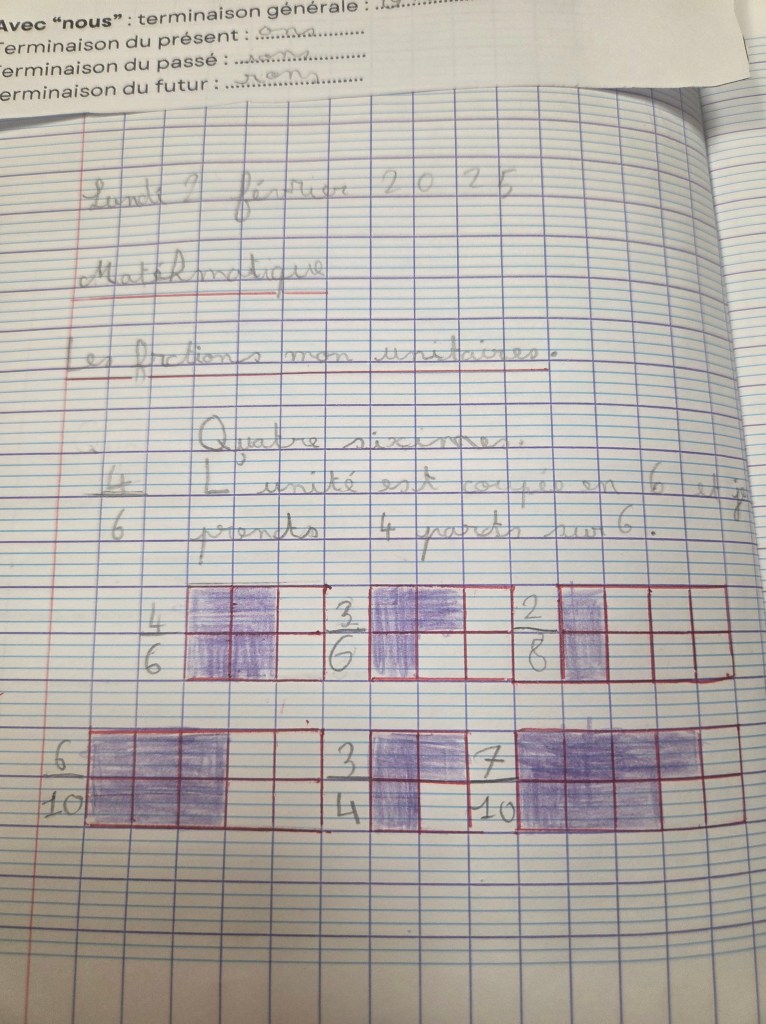 Avec “nous” : terminaison générale :
Terminaison du présent : ons
Terminaison du passé : ions
Terminaison du futur : rons
Lundi 2 février 2025
Matékmatique
Les frctions non unitaires.
Quatre sixièmes.
4/6 L'unité est coupée en 6 et je
prends 4 parts sur 6.
4/6 3/6 2/8
6/10 3/4 7/10